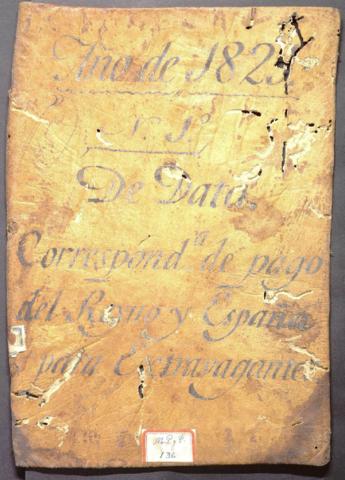 Año de 1825
N.º 1.º
De Data.
Correspond.ª de pago
del Reyno y España
para Extravagante
M.P.y D.
136